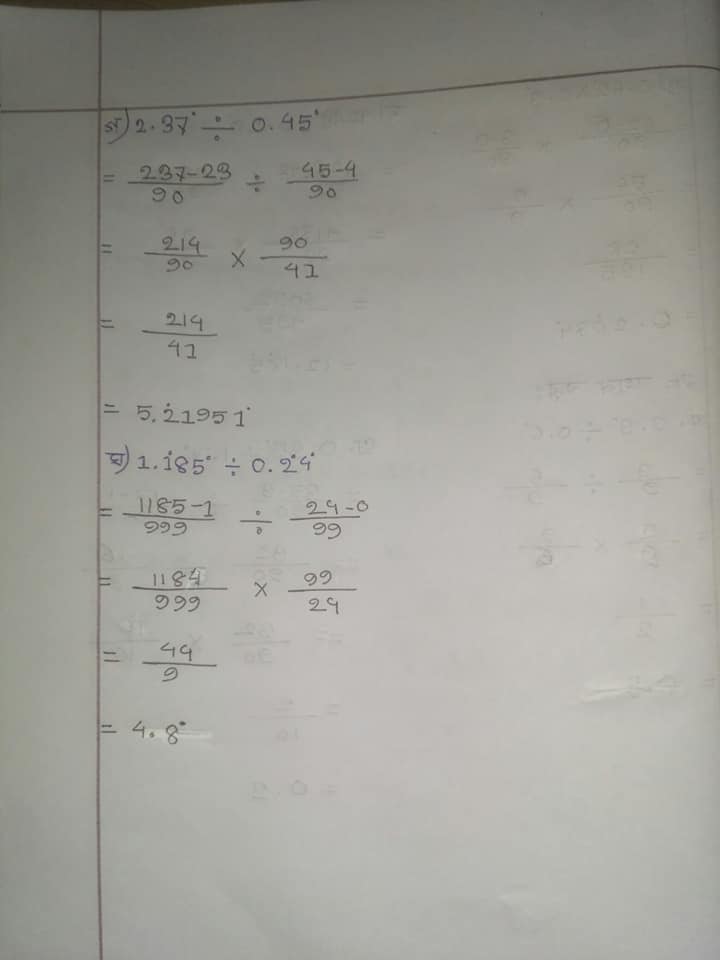 গ) 2.37̇ ÷ 0.45̇
= 237-23/90 ÷ 45-4/90
= 214/90 × 90/41
= 214/41
= 5.2̇1951̇
ঘ) 1.1̇85̇ ÷ 0.2̇4̇
= 1185-1/999 ÷ 24-0/99
= 1184/999 × 99/24
= 44/9
= 4.8̇